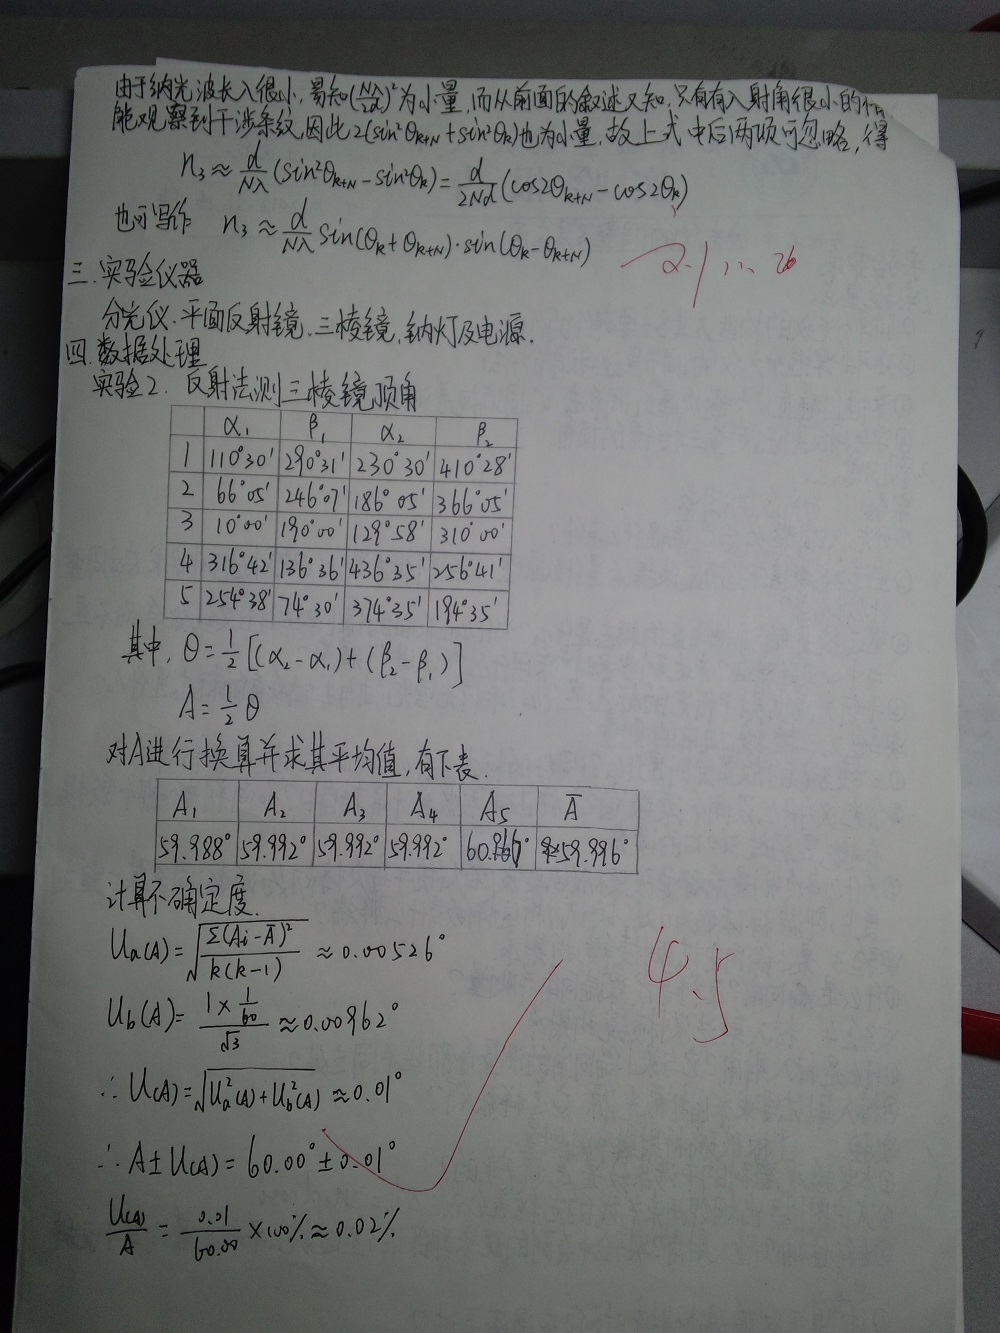 由于钠光波长λ很小,易知(Nλ/2d)²为小量,而从前面的叙述又知,只有有入射角很小的
能观察到干涉条纹,因此2(sin²θk+N+sin²θk)也为小量,故上式中后两项可忽略,得
n₃≈d/Nλ(sin²θk+N−sin²θk)=d/2Nd(cos2θk+N−cos2θk)
也可写作 n₃≈d/Nλ sin(θk+θk+N)·sin(θk−θk+N)
三.实验仪器
分光仪.平面反射镜.三棱镜,钠灯及电源.
四.数据处理
实验2. 反射法测三棱镜顶角
α₁ β₁ α₂ β₂
1 110°30' 290°31' 230°30' 410°28'
2 66°05' 246°07' 186°05' 366°05'
3 10°00' 190°00' 129°58' 310°00'
4 316°42' 136°36' 436°35' 256°41'
5 254°38' 74°30' 374°35' 194°35'
其中, θ=1/2[(α₂−α₁)+(β₂−β₁)]
A=1/2θ
对A进行换算并求其平均值,有下表.
A₁ A₂ A₃ A₄ A₅ Ā
59.988° 59.992° 59.992° 59.992° 59.996°
计算不确定度.
Ua(A)=√(Σ(Ai−Ā)²/k(k−1)) ≈0.00526°
Ub(A)=(1×1/60)/√3≈0.00962°
∴ U(A)=√(Ua²(A)+Ub²(A))≈0.01°
∴ A±U(A)=60.00°±0.01°
U(A)/A=0.01/60.00×100%≈0.02%
4.5